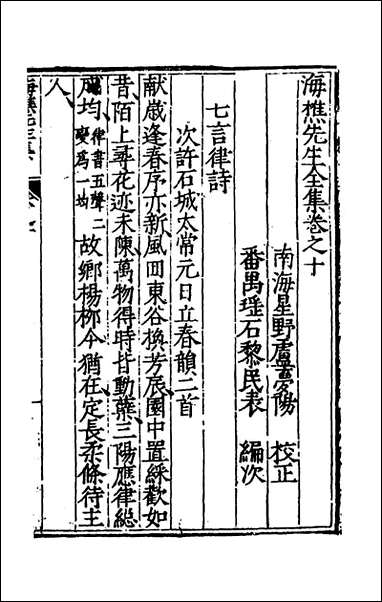 海樵先生全集卷之十
南海星野盧夢陽 校正
番禺瑶石黎民表 編次
七言律詩
次許石城太常元日立春韻二首
献歳逢春序亦新風囬東谷換芳辰園中置綵歡如
昔陌上尋花迹未陳萬物得時皆動蘂三陽應律総
成均律書五聲二變爲一均故鄉楊栁今猶在定長柔條待主
人